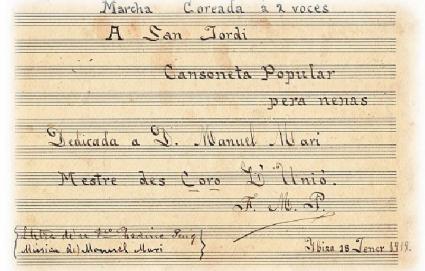 Marcha Coreada a 2 voces
A San Jordi
Cansoneta Popular
pera nenas
Dedicada a D. Manuel Mari
Mestre des Coro L'Unió.
F. M. P
Lletra de
Música de Manuel Mari
Ybiza 18 Jener 1919.